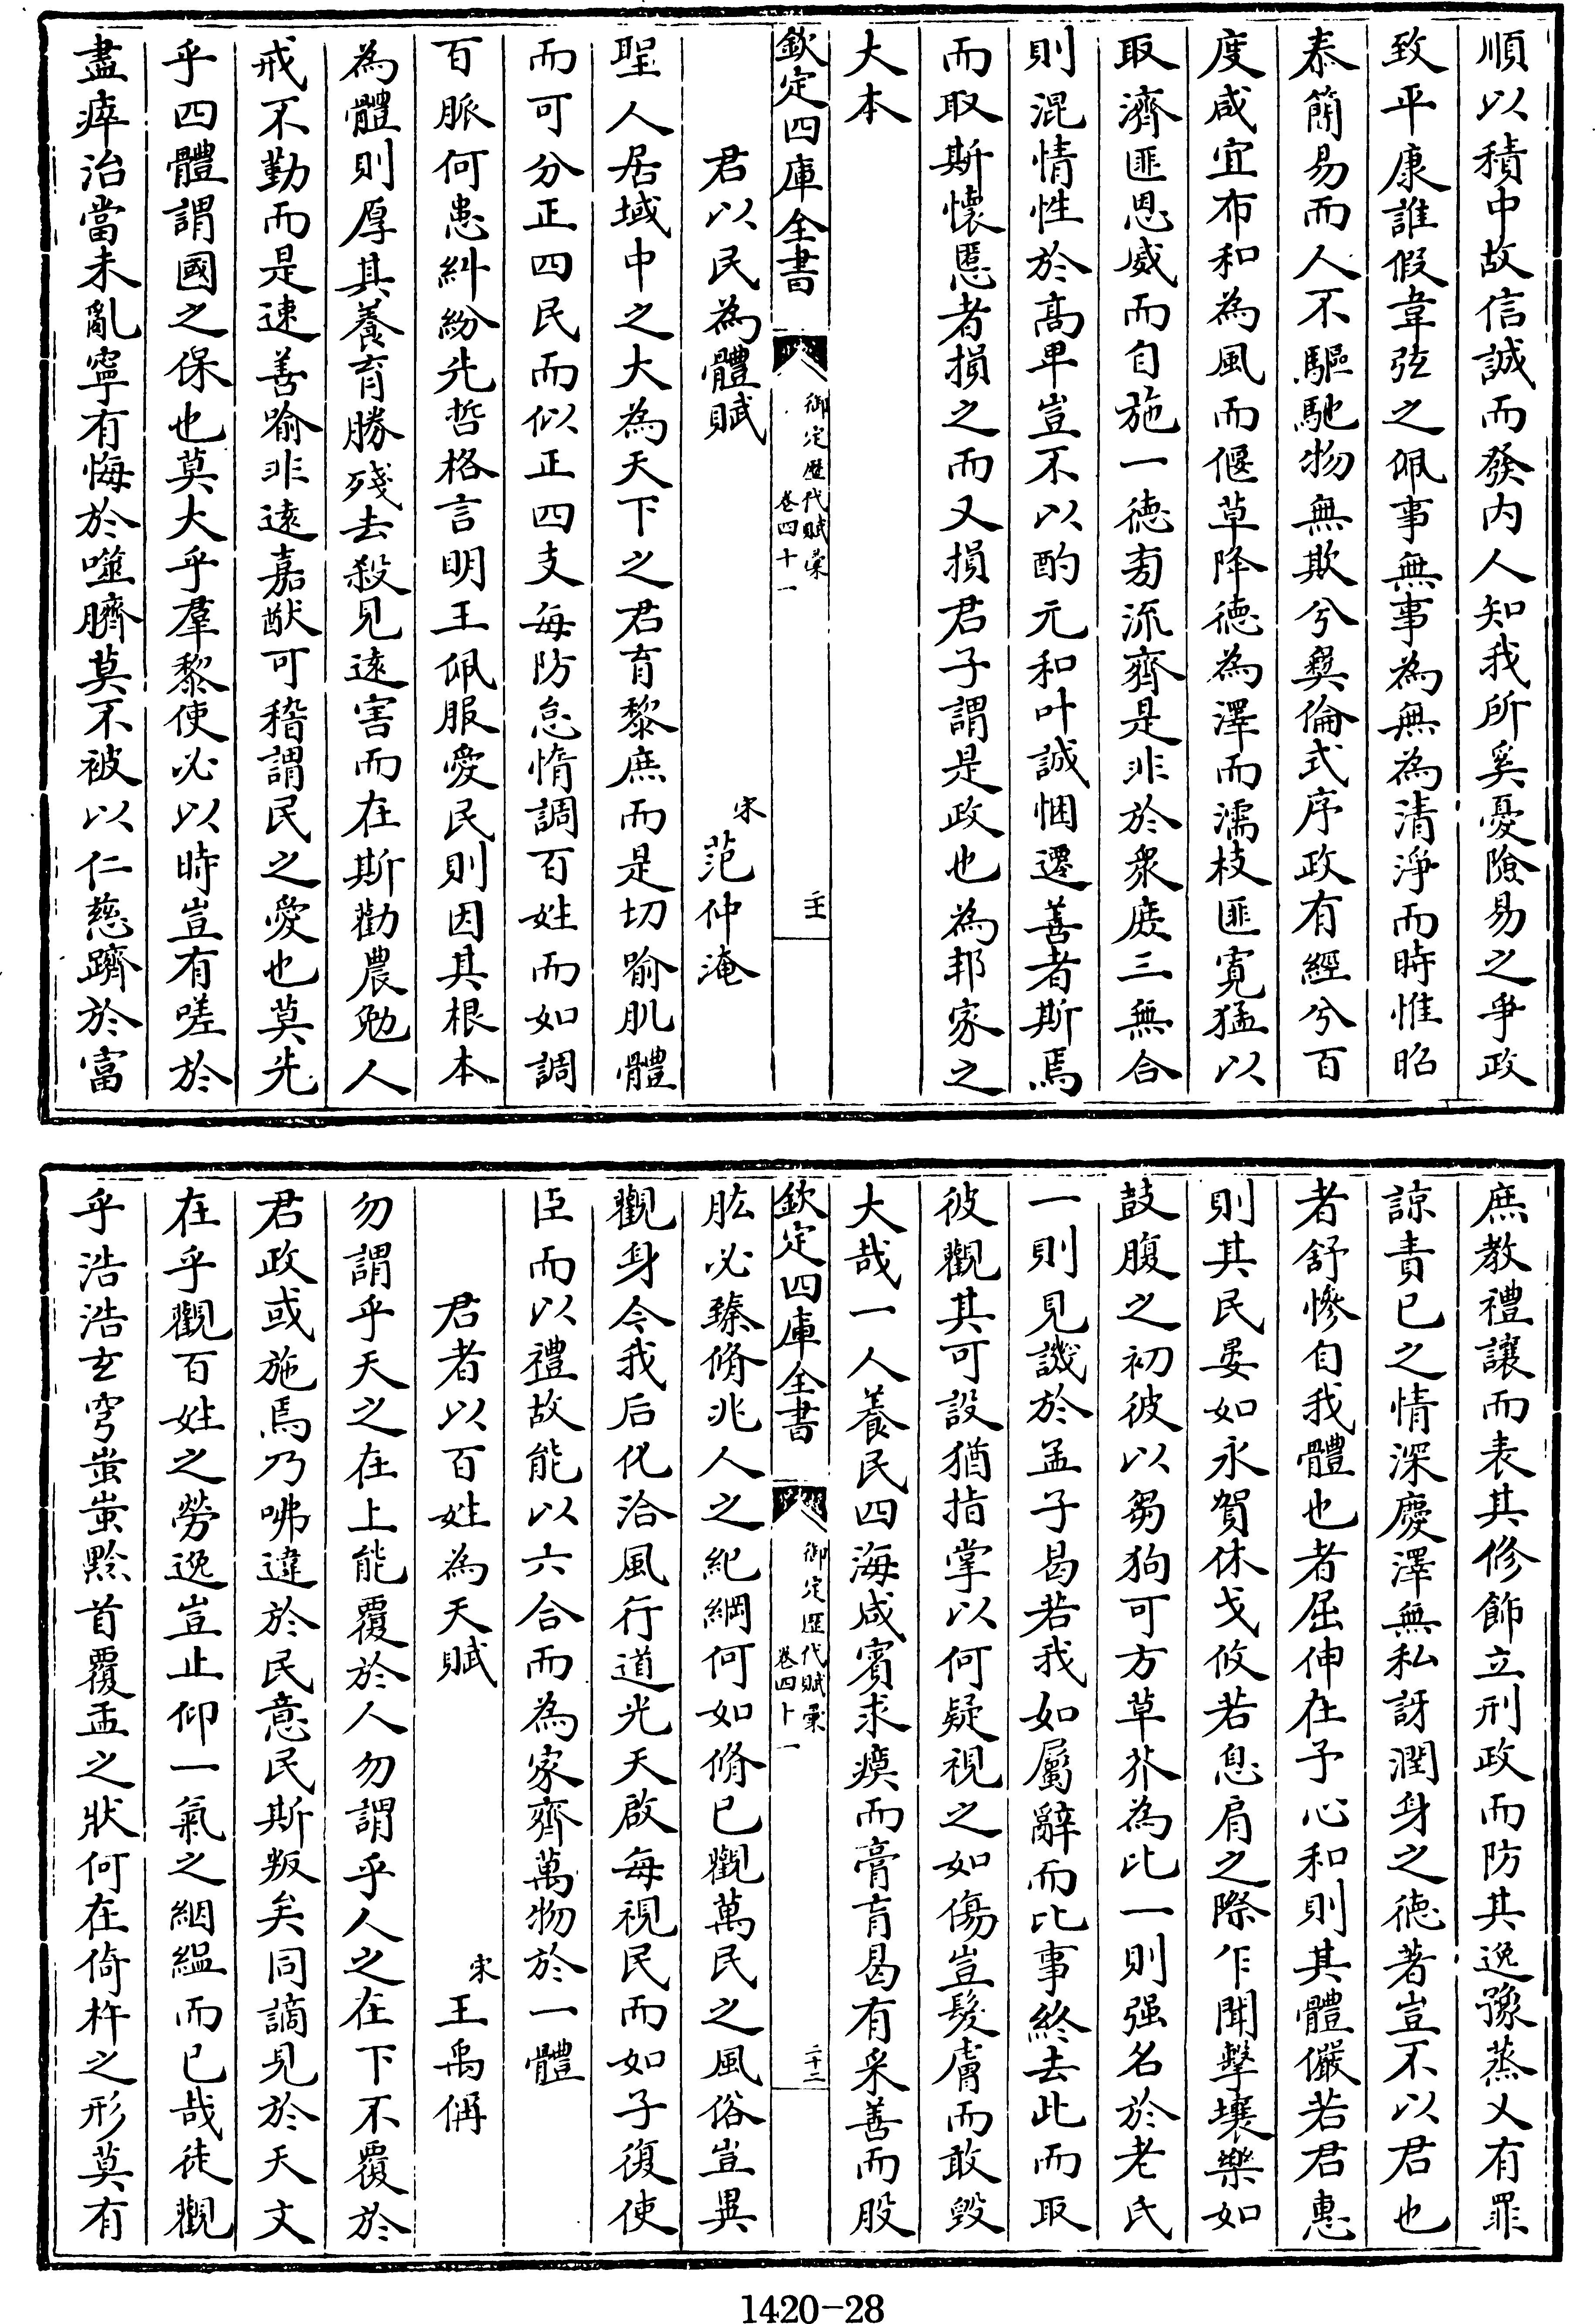 順以積中故信誠而發内人知我所奚憂險易之爭政
致平康誰假韋弦之佩事無事為無為清淨而時惟昭
泰簡易而人不驅馳物無欺兮彛倫式序政有經兮百
度咸宜布和為風而偃草降德為澤而濡枝匪寛猛以
取濟匪恩威而自施一德旁流齊是非於衆庶三無合
則混情性於髙卑豈不以酌元和叶誠悃遷善者斯焉
而取斯懷慝者損之而又損君子謂是政也為邦家之
大本
欽定四庫全書
御定歴代賦彚
卷四十一
二十二
君以民為體賦
宋范仲淹
聖人居域中之大為天下之君育黎庶而是切喻肌體
而可分正四民而似正四支每防怠惰調百姓而如調
百脈何患糾紛先哲格言明王佩服愛民則因其根本
為體則厚其養育勝殘去殺見逺害而在斯勸農勉人
戒不勤而是速善喻非逺嘉猷可稽謂民之愛也莫先
乎四體謂國之保也莫大乎羣黎使必以時豈有嗟於
盡瘁治當未亂寧有悔於噬臍莫不被以仁慈躋於富
庶教禮讓而表其修飾立刑政而防其逸豫蒸乂有罪
諒責已之情深慶澤無私訝潤身之德著豈不以君也
者舒慘自我體也者屈伸在予心和則其體儼若君惠
則其民晏如永賀休戈攸若息肩之際乍聞擊壤樂如
鼓腹之初彼以芻狗可方草芥為比一則强名於老氏
一則見譏於孟子曷若我如屬辭而比事終去此而取
彼觀其可設猶指掌以何疑視之如傷豈髮膚而敢毁
大哉一人養民四海咸賓求瘼而膏肓曷有采善而股
欽定四庫全書
御定歴代賦彚
卷四十一
二十三
肱必臻脩兆人之紀綱何如脩已觀萬民之風俗豈異
觀身今我后化洽風行道光天啟每視民而如子復使
臣而以禮故能以六合而為家齊萬物於一體
君者以百姓為天賦
宋王禹偁
勿謂乎天之在上能覆於人勿謂乎人之在下不覆於
君政或施焉乃咈違於民意民斯叛矣同謫見於天文
在乎觀百姓之勞逸豈止仰一氣之絪縕而已哉徒觀
乎浩浩𤣥穹蚩蚩黔首覆盂之狀何在倚杵之形莫有
1420-28